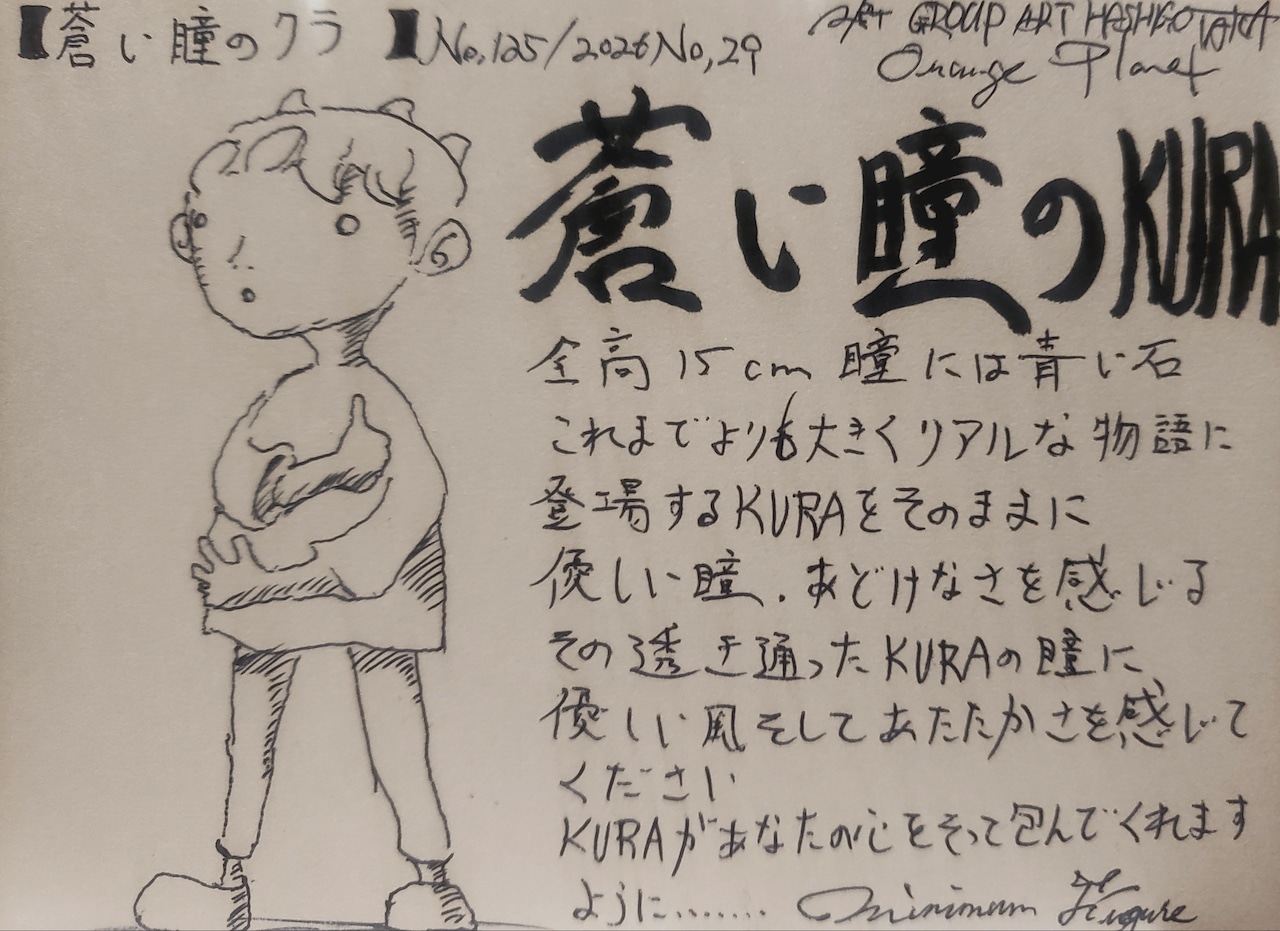 【蒼い瞳のクラ 】No,125/2026No,29
ART GROUP ART HASHIGO TAKA
Orange Planet
蒼い瞳のKURA
全高15cm 瞳には青い石
これまでよりも大きくリアルな物語に
登場するKURAをそのままに
優しい瞳.あどけなさを感じる
その透き通ったKURAの瞳に、
優しい風そしてあたたかさを感じて
ください
KURAがあなたの心をそって包んでくれます
ように........ Minimum Figure